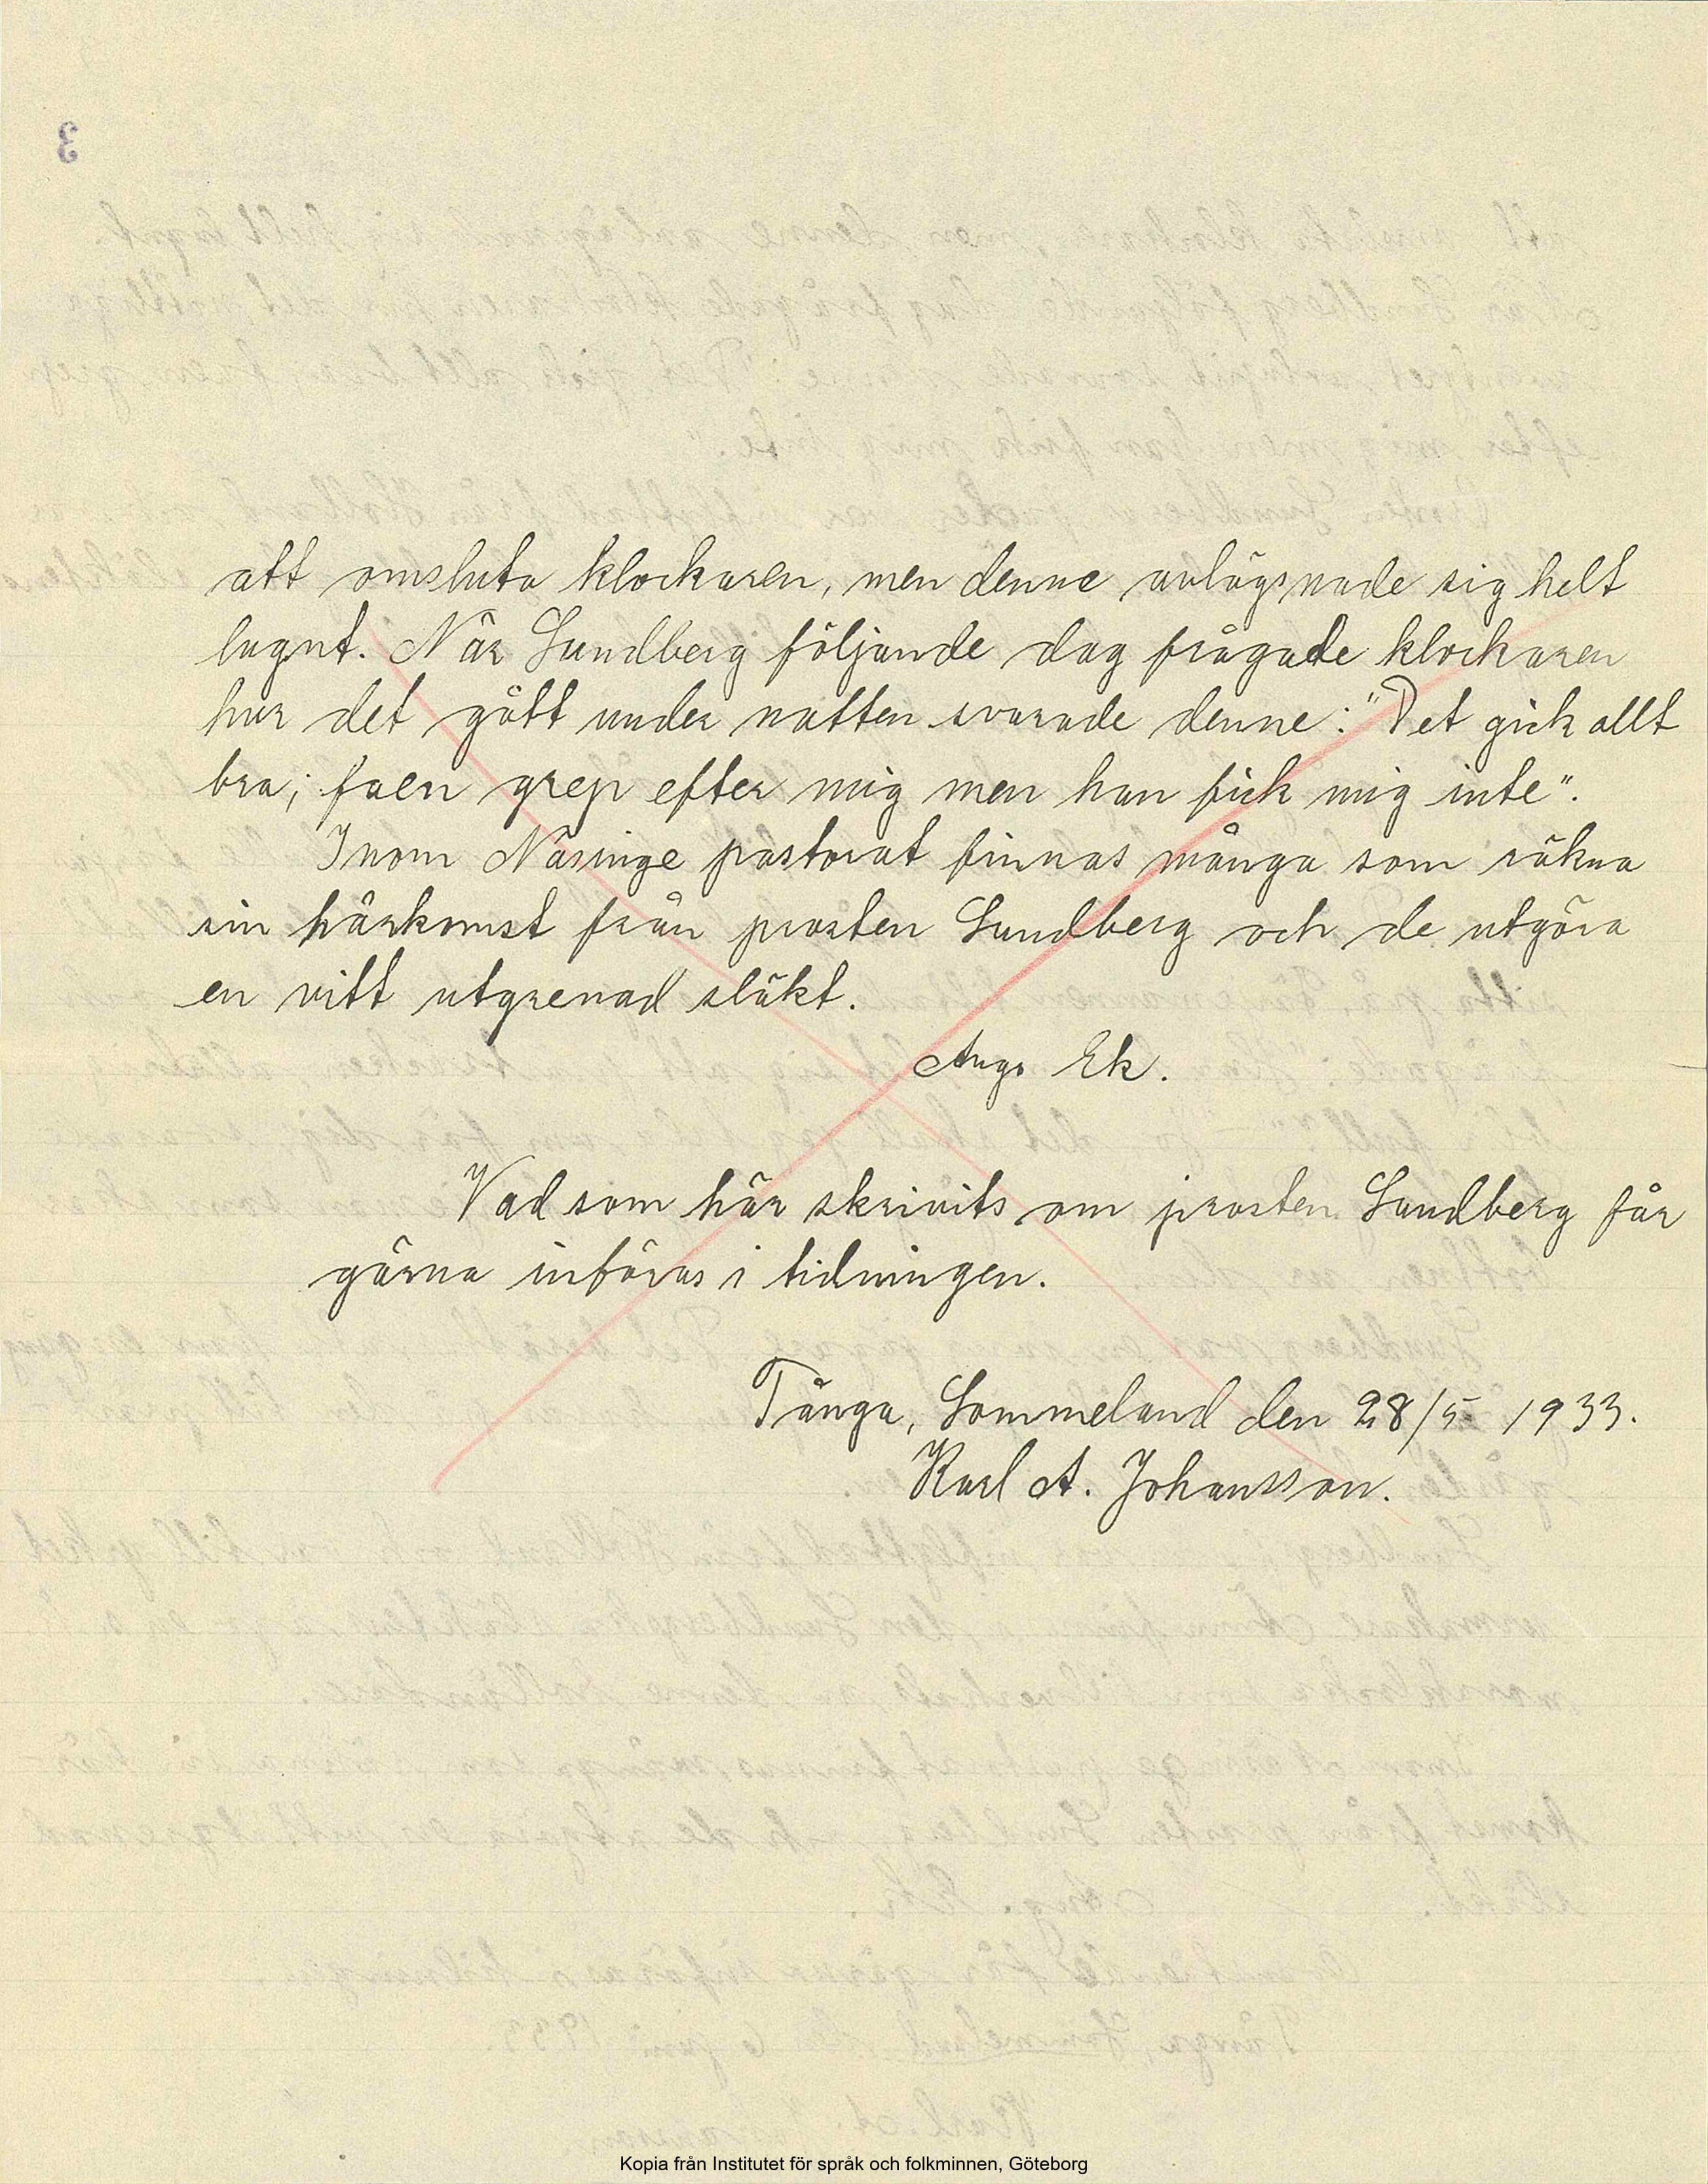 3
att omsluta klockaren, men denne avlägsnade sig helt
lugnt. När Lundberg följande dag frågade klockaren
hur det gått under natten svarade denne: "Det gick allt
bra; faen grep efter mig men han fick mig inte".
Inom Näsinge pastorat finnas många som räkna
sin härkomst från prosten Lundberg och de utgöra
en vitt utgrenad släkt.
Aug. Ek.
Vad som här skrivits om prosten Lundberg får
gärna införas i tidningen.
Tånga, Lommeland den 28/5 1933.
Karl A. Johansson.
Kopia från Institutet för språk och folkminnen, Göteborg